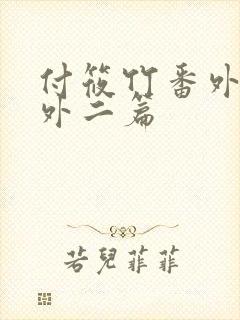 付筱竹番外
外二篇
若兒菲菲